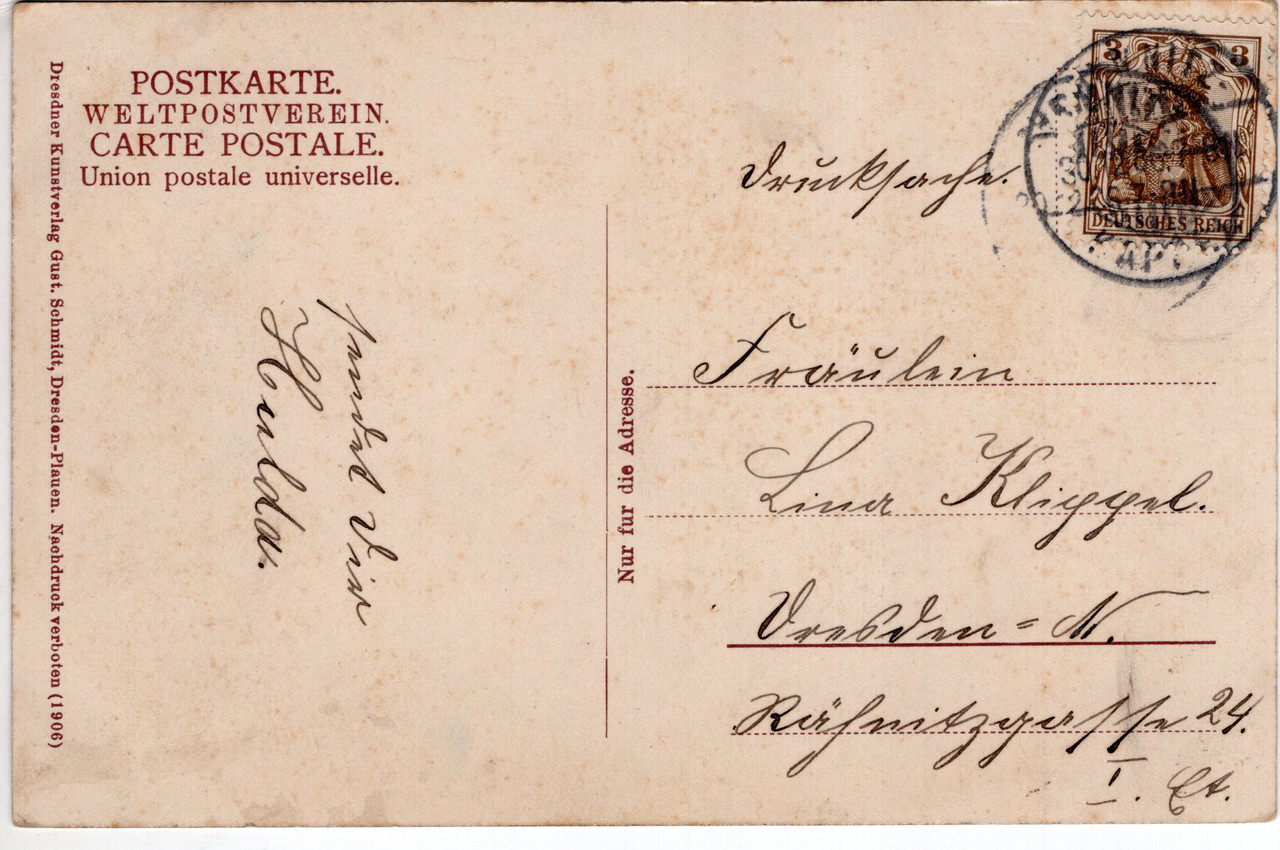 POSTKARTE.
WELTPOSTVEREIN.
CARTE POSTALE.
Union postale universelle.
Dresdner Kunstverlag Gust. Schmidt, Dresden-Plauen. Nachdruck verboten (1906)
sendet Dir
Hulda.
Nur fur die Adresse.
Drucksache.
3 3
DEUTSCHES REICH
Fräulein
Lina Klippel.
Dresden=N.
Rähnitzgasse 24.
I. Et.